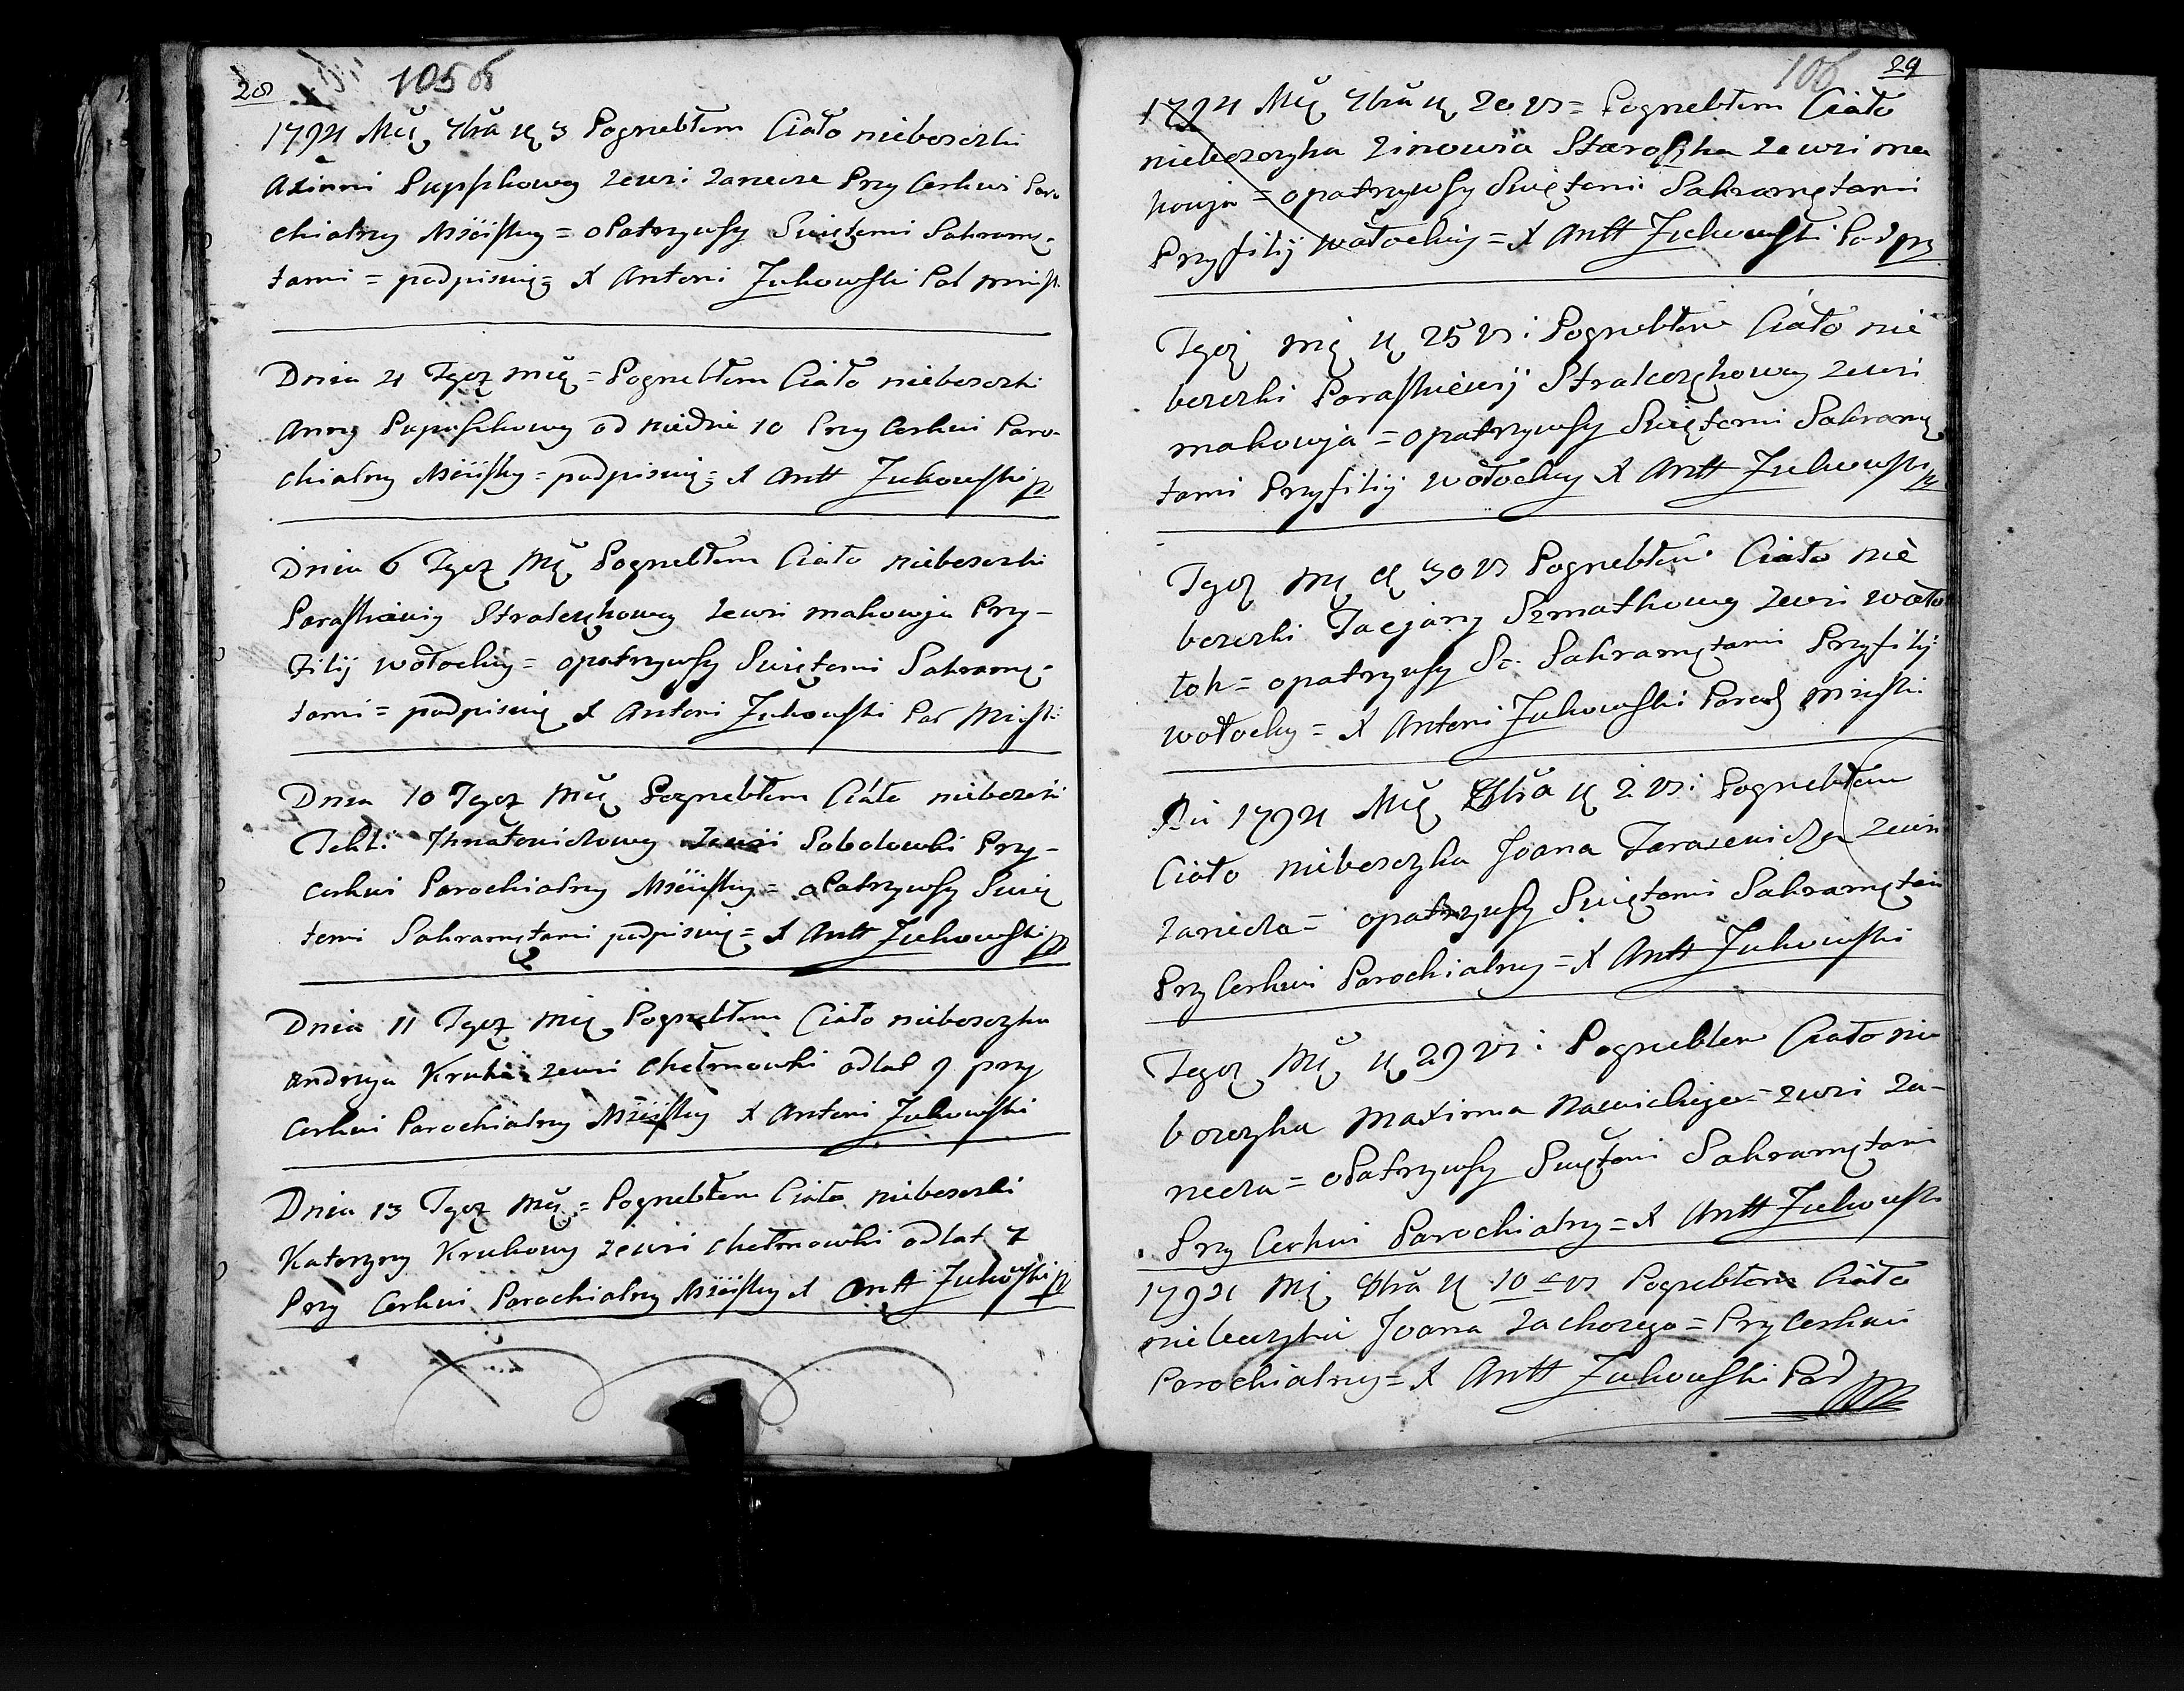 28
105
1794 Mcą 7bra d. 3 Pogrzebłem Ciało nieboszczki
Axinni Pupszkowey zewsi Zarzecze Przy Cerkwi Paro
chialney Mżeiskiey = opatrzywszy Swiętemi Sakramę-
tami = podpisuię = X Antoni Żukowski Par
Dnia 4 Tegoż mcą = Pogrzebłem Ciało nieboszczki
Anny Pupuszkowey od niedzie 10 Przy Cerkwi Paro-
chialney = podpisuię = X Antt Żukowski
Dnia 6 Tegoż Mcą Pogrzebłem Ciało nieboszczki
Paraskiewiy zewsi makowja Przy-
Filij wołockiey = opatrzywszy Swiętemi Sakramę-
tami = podpisuię X Antoni Żukowski Par
Dnia 10 Tegoż Mcą Pogrzebłem Ciało nieboszcki
Tekli zewsi Sobolowki Przy-
cerkwi Parochialney = opatrzywszy Swię
temi Sakramętami podpisuię = X Antt Żukowski
Dnia 11 Tegoż mcą Pogrzebłem Ciało nieboszczyka
Andrzeja Kruka zewsi chełmowki odlat 9 przy
Cerkwi Parochialney X Antoni Żukowski
Dnia 13 Tegoż Mcą = Pogrzebłem Ciało nieboszczki
Katerzyny Krukowey zewsi chełmowki odlat 7
Przy Cerkwi Parochialney X Antt Żukowski
106
29
1794 Mcą 7bra d. 20 = Pogrzebłem Ciało
nieboszczyka Zinowia zewsi ma
kowja = opatrzywszy Swiętemi Sakramętami
Przyfilij wołockiey = X Antt Żukowski
Tegoż mcą d. 25 Pogrzebłem Ciało nie
boszczki Paraskiewij zewsi
makowja = opatrzywszy Swiętemi Sakramę
tami Przyfilij wołockiey X Antt Żukowski
Tegoż mcą d. 30 Pogrzebłem Ciało nie
boszczki Tacjany Szmatkowey zewsi woło
tok = opatrzywszy Sakramętami Przyfilij
wołockiey = X Antoni Żukowski
1794 Mcą d. 2 Pogrzebłem
Ciało nieboszczyka Joana Tarasewicza zewsi
Zarzecza = opatrzywszy Swiętemi Sakramętami
Przy Cerkwi Parochialney = X Antt Żukowski
Tegoż Mcą d. 29 Pogrzebłem Ciało nie
boszczyka Maxima zewsi Za-
rzecza = opatrzywszy Swiętemi Sakramętami
Przy Cerkwi Parochialney = X Antt Żukowski
1794 Mcą d. 10 Pogrzebłem Ciało
nieboszczyka Joana = Przy Cerkwi
Parochialney = X Antt Żukowski